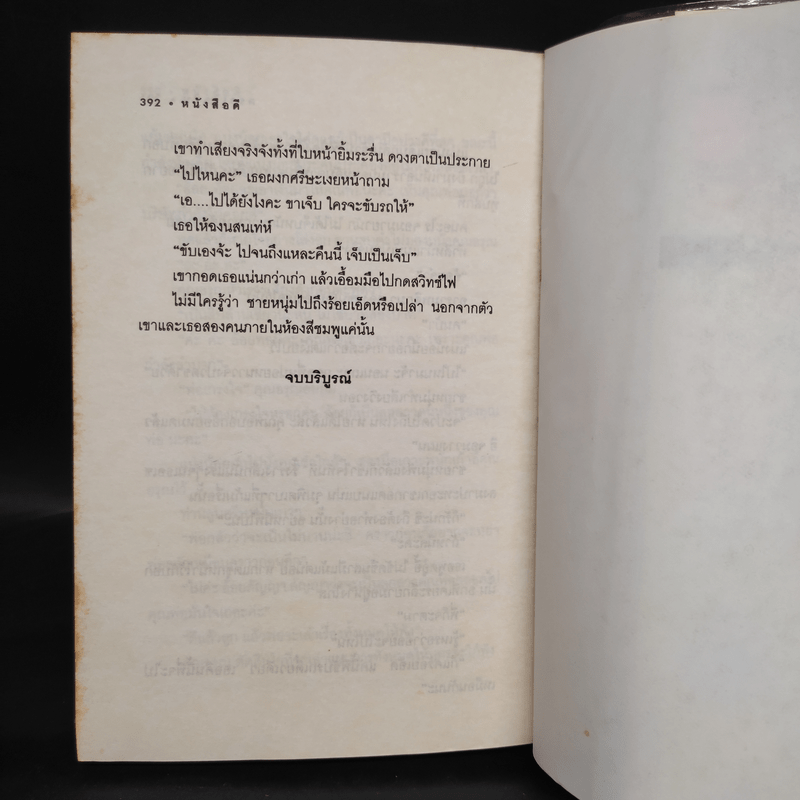 392 • หนังสือดี
เขาทำเสียงจริงจังทั้งที่ใบหน้ายิ้มระรื่น ดวงตาเป็นประกาย
“ไปไหนคะ” เธอผงกศรีษะเงยหน้าถาม
“เอ....ไปได้ยังไงคะ ขาเจ็บ ใครจะขับรถให้”
เธอให้ฉงนสนเท่ห์
“ขับเองจ้ะ ไปจนถึงแหละคืนนี้ เจ็บเป็นเจ็บ”
เขากอดเธอแน่นกว่าเก่า แล้วเอื้อมมือไปกดสวิทช์ไฟ
ไม่มีใครรู้ว่า ชายหนุ่มไปถึงร้อยเอ็ดหรือเปล่า นอกจากตัว
เขาและเธอสองคนภายในห้องสีชมพูแค่นั้น
จบบริบูรณ์